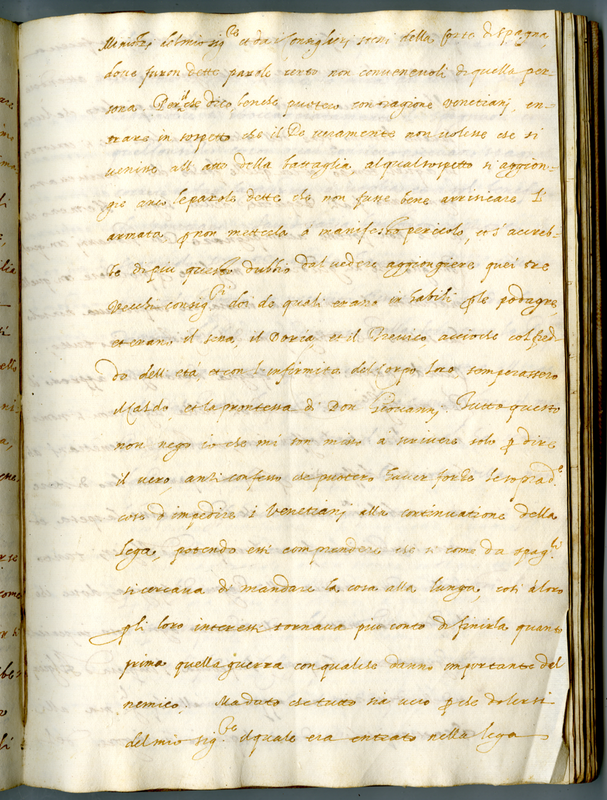 Ministri del mio sig.re et da i Consiglieri soeni della corte di spagna,
doue furon dette parole verso non conueneuoli di quella per
sona. Perche dico benche poteuo con ragione Venetiani, en-
trare in sospetto che il Re ueramente non uolesse che si
uenisse all'atto della battaglia, al qual sospetto si aggion-
ge anco le parole dette che non fusse bene arrisicare l'
armata p non metterla a manifesto pericolo, et s'accreb-
be di piu questo dubbio dal uedere aggiongiere quei tre
Vecchi consig.ri doi de quali erano inhabili p le podagre,
et erano il sesa, il Doria et il Treuico accioche col fred-
do dell'età, et con l'infirmità del corpo loro, temperassero
il caldo et la prontezza di Don Giouanni. Tutto questo
non nego io che mi son messo a scriuere solo p dire
il uero, anzi confesso che potero hauer forza le soprad.e
cose d'impedire i Venetiani alla continuatione della
lega, potendo essi comprendere che si come da spag.li
si cercaua di mandare la cosa alla lunga, così à loro
p gli loro interessi tornaua piu conto di finirla quanto
prima quella guerra con qualche danno importante del
nemico. Ma dato che tutto sia uero p che dolersi
del mio sig.re il quale era entrato nella lega